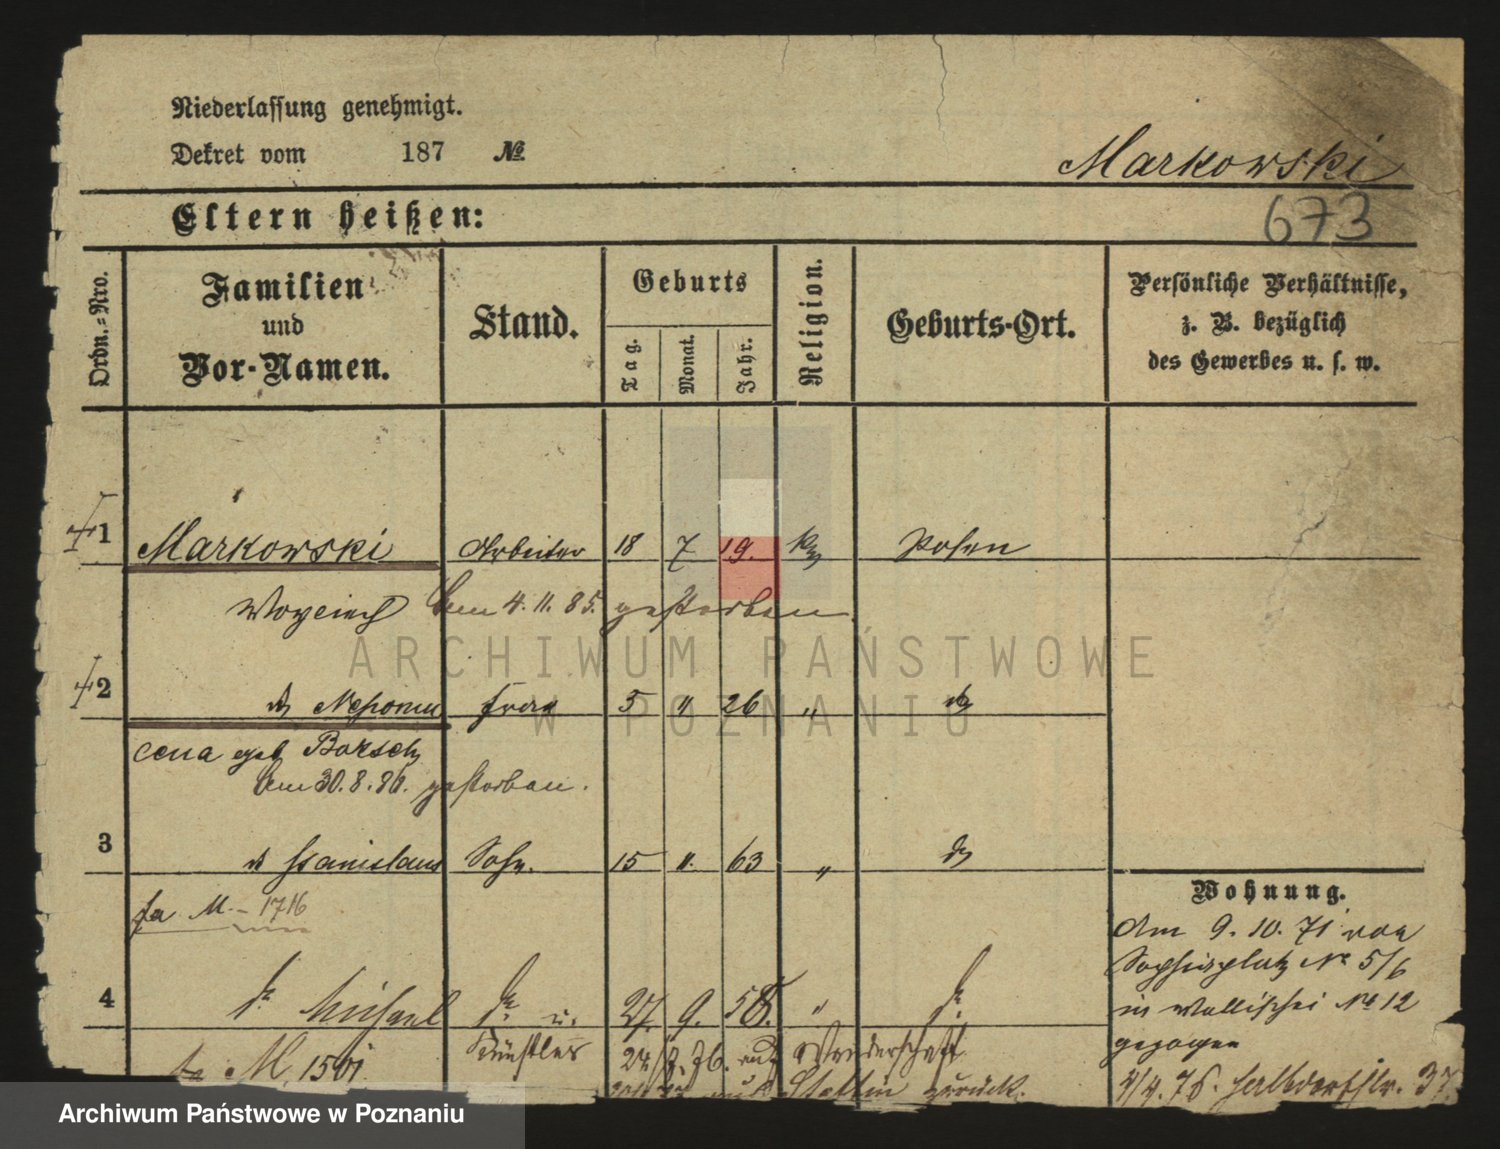 Niederlassung genehmigt.
Dekret vom 187 №
Markowski
673
Eltern heißen:
Ordn.-Nro.
Familien
und
Vor-Namen.
Stand.
Geburts
Tag.
Monat.
Jahr.
Religion.
Geburts-Ort.
Persönliche Verhältnisse,
z. B. bezüglich
des Gewerbes u. s. w.
1 Markowski Arbeiter 18 7 19. Posen
Woyciech am 4.11.85. gestorben
2 Nepomu Frau 5 " 26 "
cena geb Borsch
am 30.8.86. gestorben.
3 Stanislaus Sohn. 15 ". 63 "
fa M. – 1716
4 Michael u. 27. 9. 58. "
Künstler auf Wanderschaft
M. 1501
Stettin zurück.
Wohnung.
Am 9. 10. 71 von
Sophienplatz № 5/6
in Wallischei № 12
gezogen
4/4. 76. Halbdorfstr. 37.
ARCHIWUM PAŃSTWOWE
W POZNANIU
Archiwum Państwowe w Poznaniu